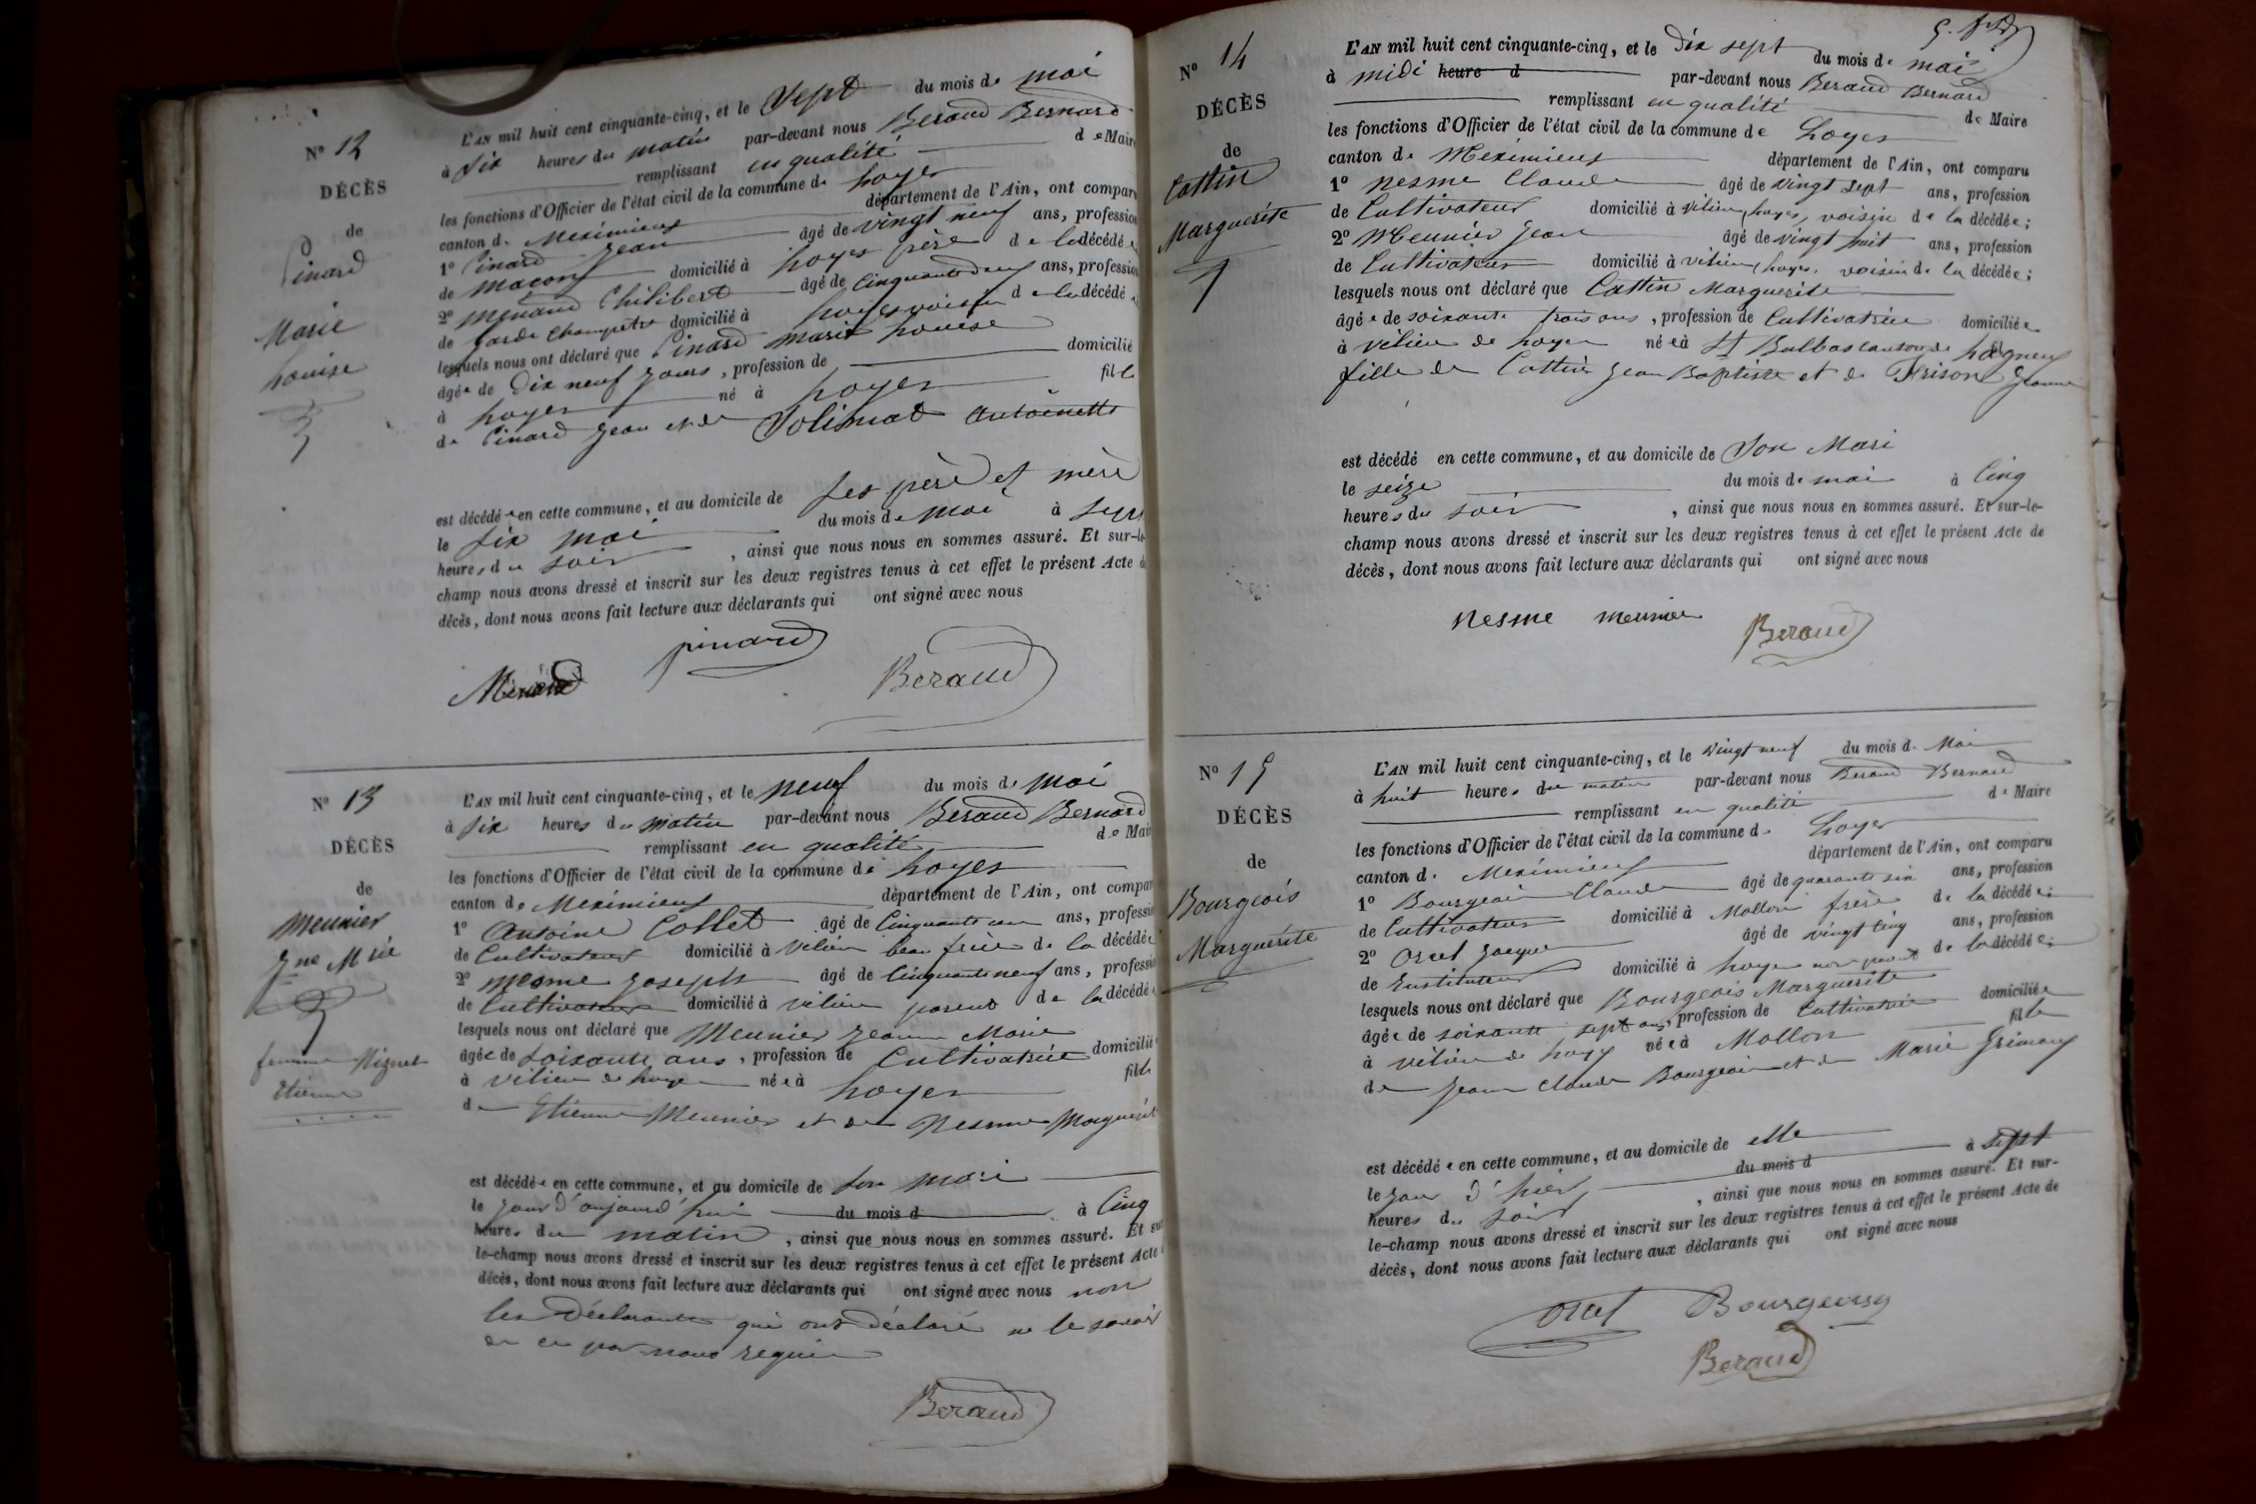 N° 12
DÉCÈS
de
Pinard
Marie
Louise
L'AN mil huit cent cinquante-cinq, et le Sept du mois de mai
à Six heures du matin par-devant nous Beraud Bernard
remplissant en qualité de Maire
les fonctions d'Officier de l'état civil de la commune de Loyes
canton de Meximieux département de l'Ain, ont comparu
1° Pinard Jean âgé de vingt neuf ans, profession
de Maçon domicilié à Loyes père de la décédée
2° Menand Philibert âgé de Cinquante deux ans, profession
de Garde Champetre domicilié à Loyes voisin de la décédée
lesquels nous ont déclaré que Pinard Marie Louise
âgée de Dix neuf Jours, profession de domicilié
à Loyes né à Loyes fille
de Pinard Jean et de Solimat Antoinette
est décédée en cette commune, et au domicile de Ses père et mère
le Six mai du mois de Mai à Sept
heures du soir, ainsi que nous nous en sommes assuré. Et sur-le-
champ nous avons dressé et inscrit sur les deux registres tenus à cet effet le présent Acte de
décès, dont nous avons fait lecture aux déclarants qui ont signé avec nous
Menand pinard Beraud
N° 13
DÉCÈS
de
Meunier
Jne Mrie
femme Niguet
Etienne
L'AN mil huit cent cinquante-cinq, et le neuf du mois de mai
à Six heures du matin par-devant nous Beraud Bernard
remplissant en qualité de Maire
les fonctions d'Officier de l'état civil de la commune de Loyes
canton de Meximieux département de l'Ain, ont comparu
1° Antoine Collet âgé de Cinquante un ans, profession
de Cultivateur domicilié à Vilieu beau frère de la décédée
2° Mesme Joseph âgé de Cinquante neuf ans, profession
de Cultivateur domicilié à Vilieu parent de la décédée
lesquels nous ont déclaré que Meunier Jeanne Marie
âgée de Soixante ans, profession de Cultivatrice domiciliée
à Vilieu de Loyes née à Loyes fille
de Etienne Meunier et de Nesme Marguerite
est décédée en cette commune, et au domicile de Son Mari
le Jour d'aujourd'hui du mois d à Cinq
heures du matin, ainsi que nous nous en sommes assuré. Et sur-
le-champ nous avons dressé et inscrit sur les deux registres tenus à cet effet le présent Acte de
décès, dont nous avons fait lecture aux déclarants qui ont signé avec nous non
les Déclarants qui ont déclaré ne le savoir
de ce par nous requis
Beraud
N° 14
DÉCÈS
de
Cottin
Marguerite
L'AN mil huit cent cinquante-cinq, et le Dix sept du mois de mai
à midi heure d par-devant nous Beraud Bernard
remplissant en qualité de Maire
les fonctions d'Officier de l'état civil de la commune de Loyes
canton de Meximieux département de l'Ain, ont comparu
1° Nesme Claude âgé de vingt sept ans, profession
de Cultivateur domicilié à Vilieu, Loyes, voisin de la décédée;
2° Meunier Jean âgé de vingt huit ans, profession
de Cultivateur domicilié à vilieu, Loyes, voisin de la décédée;
lesquels nous ont déclaré que Cottin Marguerite
âgée de soixante trois ans, profession de Cultivatrice domiciliée
à Vilieu de Loyes née à St Bulbas canton de Lagnieu fil
fille de Cottin Jean Baptiste et de Frison Jeanne
est décédé en cette commune, et au domicile de Son Mari
le seize du mois de mai à Cinq
heures du soir, ainsi que nous nous en sommes assuré. Et sur-le-
champ nous avons dressé et inscrit sur les deux registres tenus à cet effet le présent Acte de
décès, dont nous avons fait lecture aux déclarants qui ont signé avec nous
Nesme meunier Beraud
N° 15
DÉCÈS
de
Bourgeois
Marguerite
L'AN mil huit cent cinquante-cinq, et le vingt neuf du mois de Mai
à huit heures du matin par-devant nous Beraud Bernard
remplissant en qualité de Maire
les fonctions d'Officier de l'état civil de la commune d. Loyes
canton d. Meximieux département de l'Ain, ont comparu
1° Bourgeois Claude âgé de quarante six ans, profession
de Cultivateur domicilié à Mollon frère de la décédée;
2° Orcel Jacque âgé de vingt cinq ans, profession
de Instituteur domicilié à Loyes non parent de la décédée;
lesquels nous ont déclaré que Bourgeois Marguerite
âgée de soixante sept ans, profession de Cultivatrice domiciliée
à Vilieu de Loyes née à Mollon fille
de Jean Claude Bourgeois et de Marie Grimaux
est décédée en cette commune, et au domicile de elle
le jour d'hier du mois d à Sept
heures du soir, ainsi que nous nous en sommes assuré. Et sur-
le-champ nous avons dressé et inscrit sur les deux registres tenus à cet effet le présent Acte de
décès, dont nous avons fait lecture aux déclarants qui ont signé avec nous
Orcel Bourgeois
Beraud